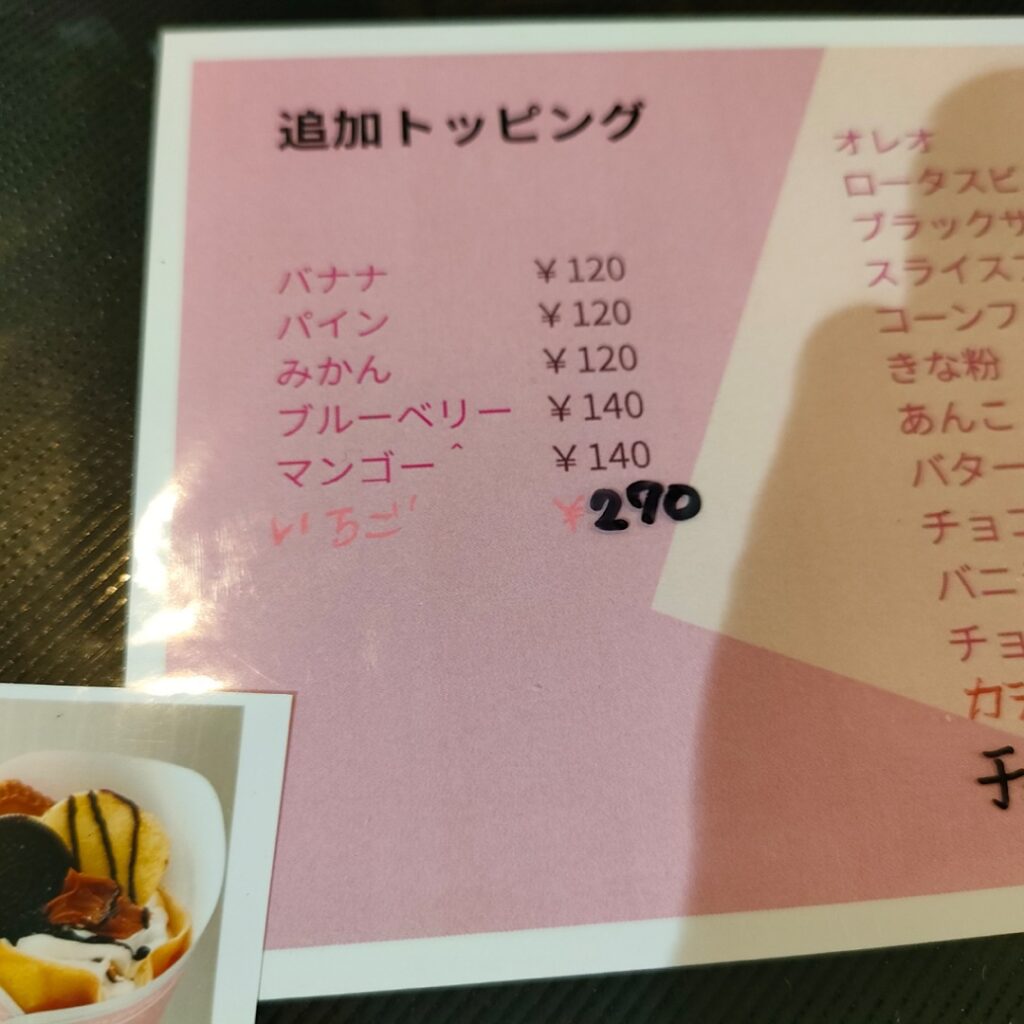 追加トッピング
バナナ ¥120
パイン ¥120
みかん ¥120
ブルーベリー ¥140
マンゴー ¥140
いちご ¥290
オレオ
ロータスビ
ブラックサ
スライス
コーンフ
きな粉
あんこ
バター
チョコ
バニ
チョ
カ
チ